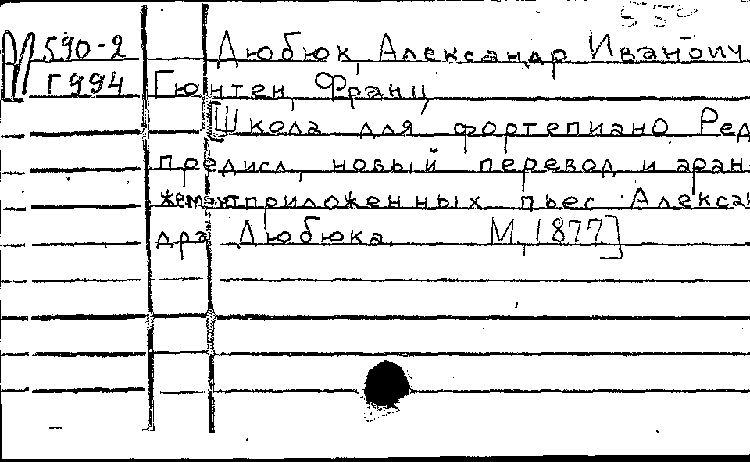 550
И 590-2 Дюбюк, Александр Иванович
Г994 Гюнтен, Франц
[Школа для фортепиано. Ред
предисл, новый перевод и аран-
жемент приложенных пьес Алексан
дра Дюбюка. М, 1877]